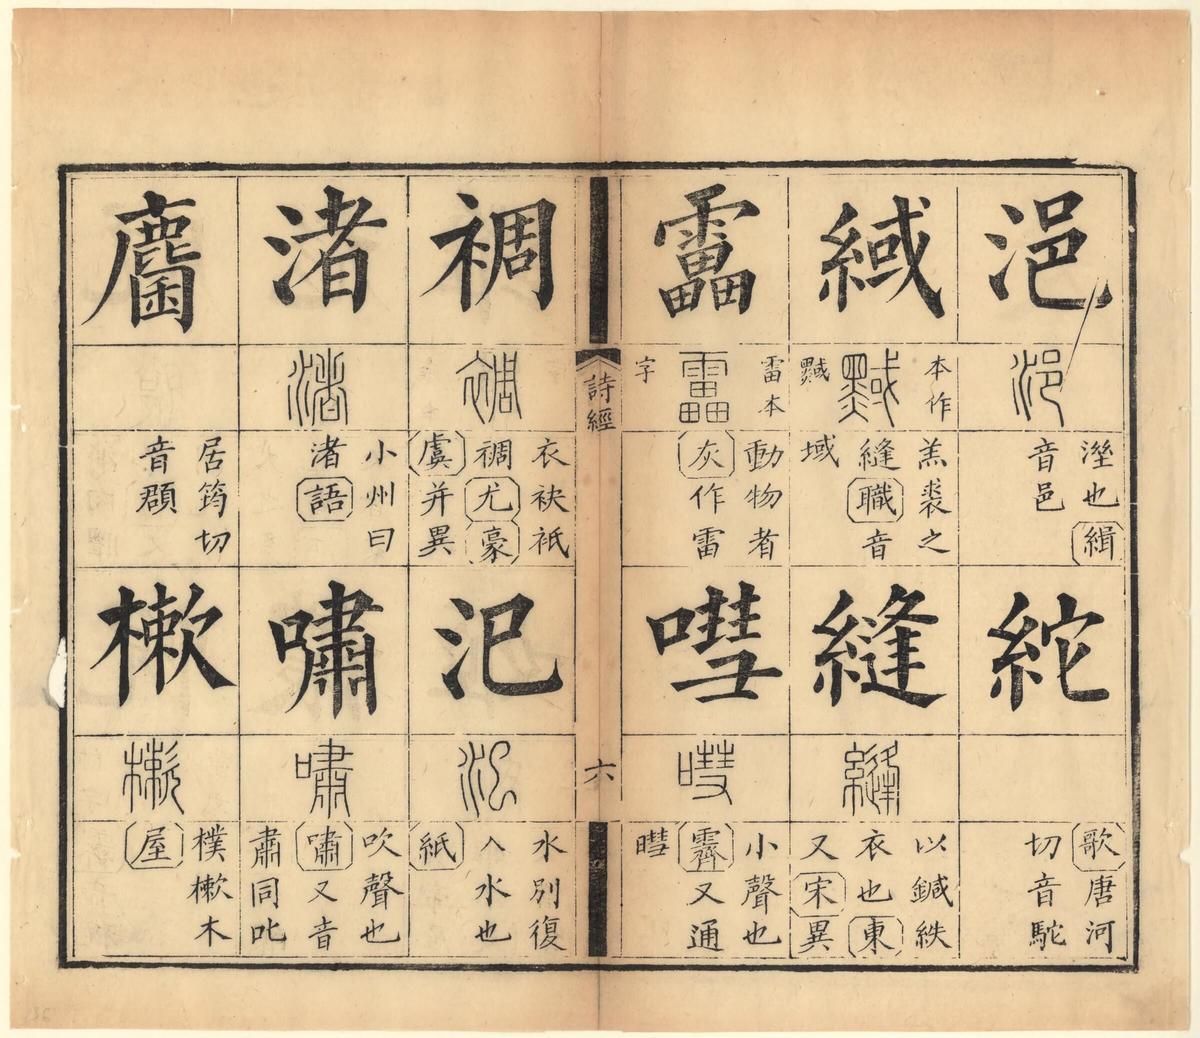 浥
浥
溼也緝
音邑
緎
本作
黬
黬
羔裘之
縫職音
域
靁
雷本
靁
字
動物者
灰作雷
紽
歌唐河
切音駝
縫
縫
以鍼紩
衣也東
又宋異
嘒
嘒
小聲也
霽又通
暳
詩經
六
裯
裯
衣袂祇
裯尤豪
虞并異
渚
渚
小州曰
渚語
麕
居筠切
音頵
汜
汜
水別復
入水也
紙
嘯
嘯
吹聲也
嘯又音
肅同叱
樕
樕
樸樕木
屋